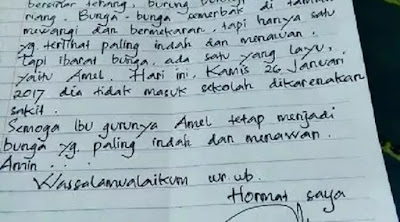 bersinar terang, burung
riang. Bunga-bunga semerbak di taman
mewangi dan bermekaran, tapi hanya satu
yg. terlihat paling indah dan menawan.
Tapi ibarat bunga, ada satu yang layu,
yaitu Amel. Hari ini, Kamis 26 Januari
2017 dia tidak masuk sekolah dikarenakan
sakit.
Semoga Ibu gurunya Amel tetap menjadi
bunga yg. paling indah dan menawan.
Amin . . .
Wassalamualaikum wr. wb.
Hormat saya